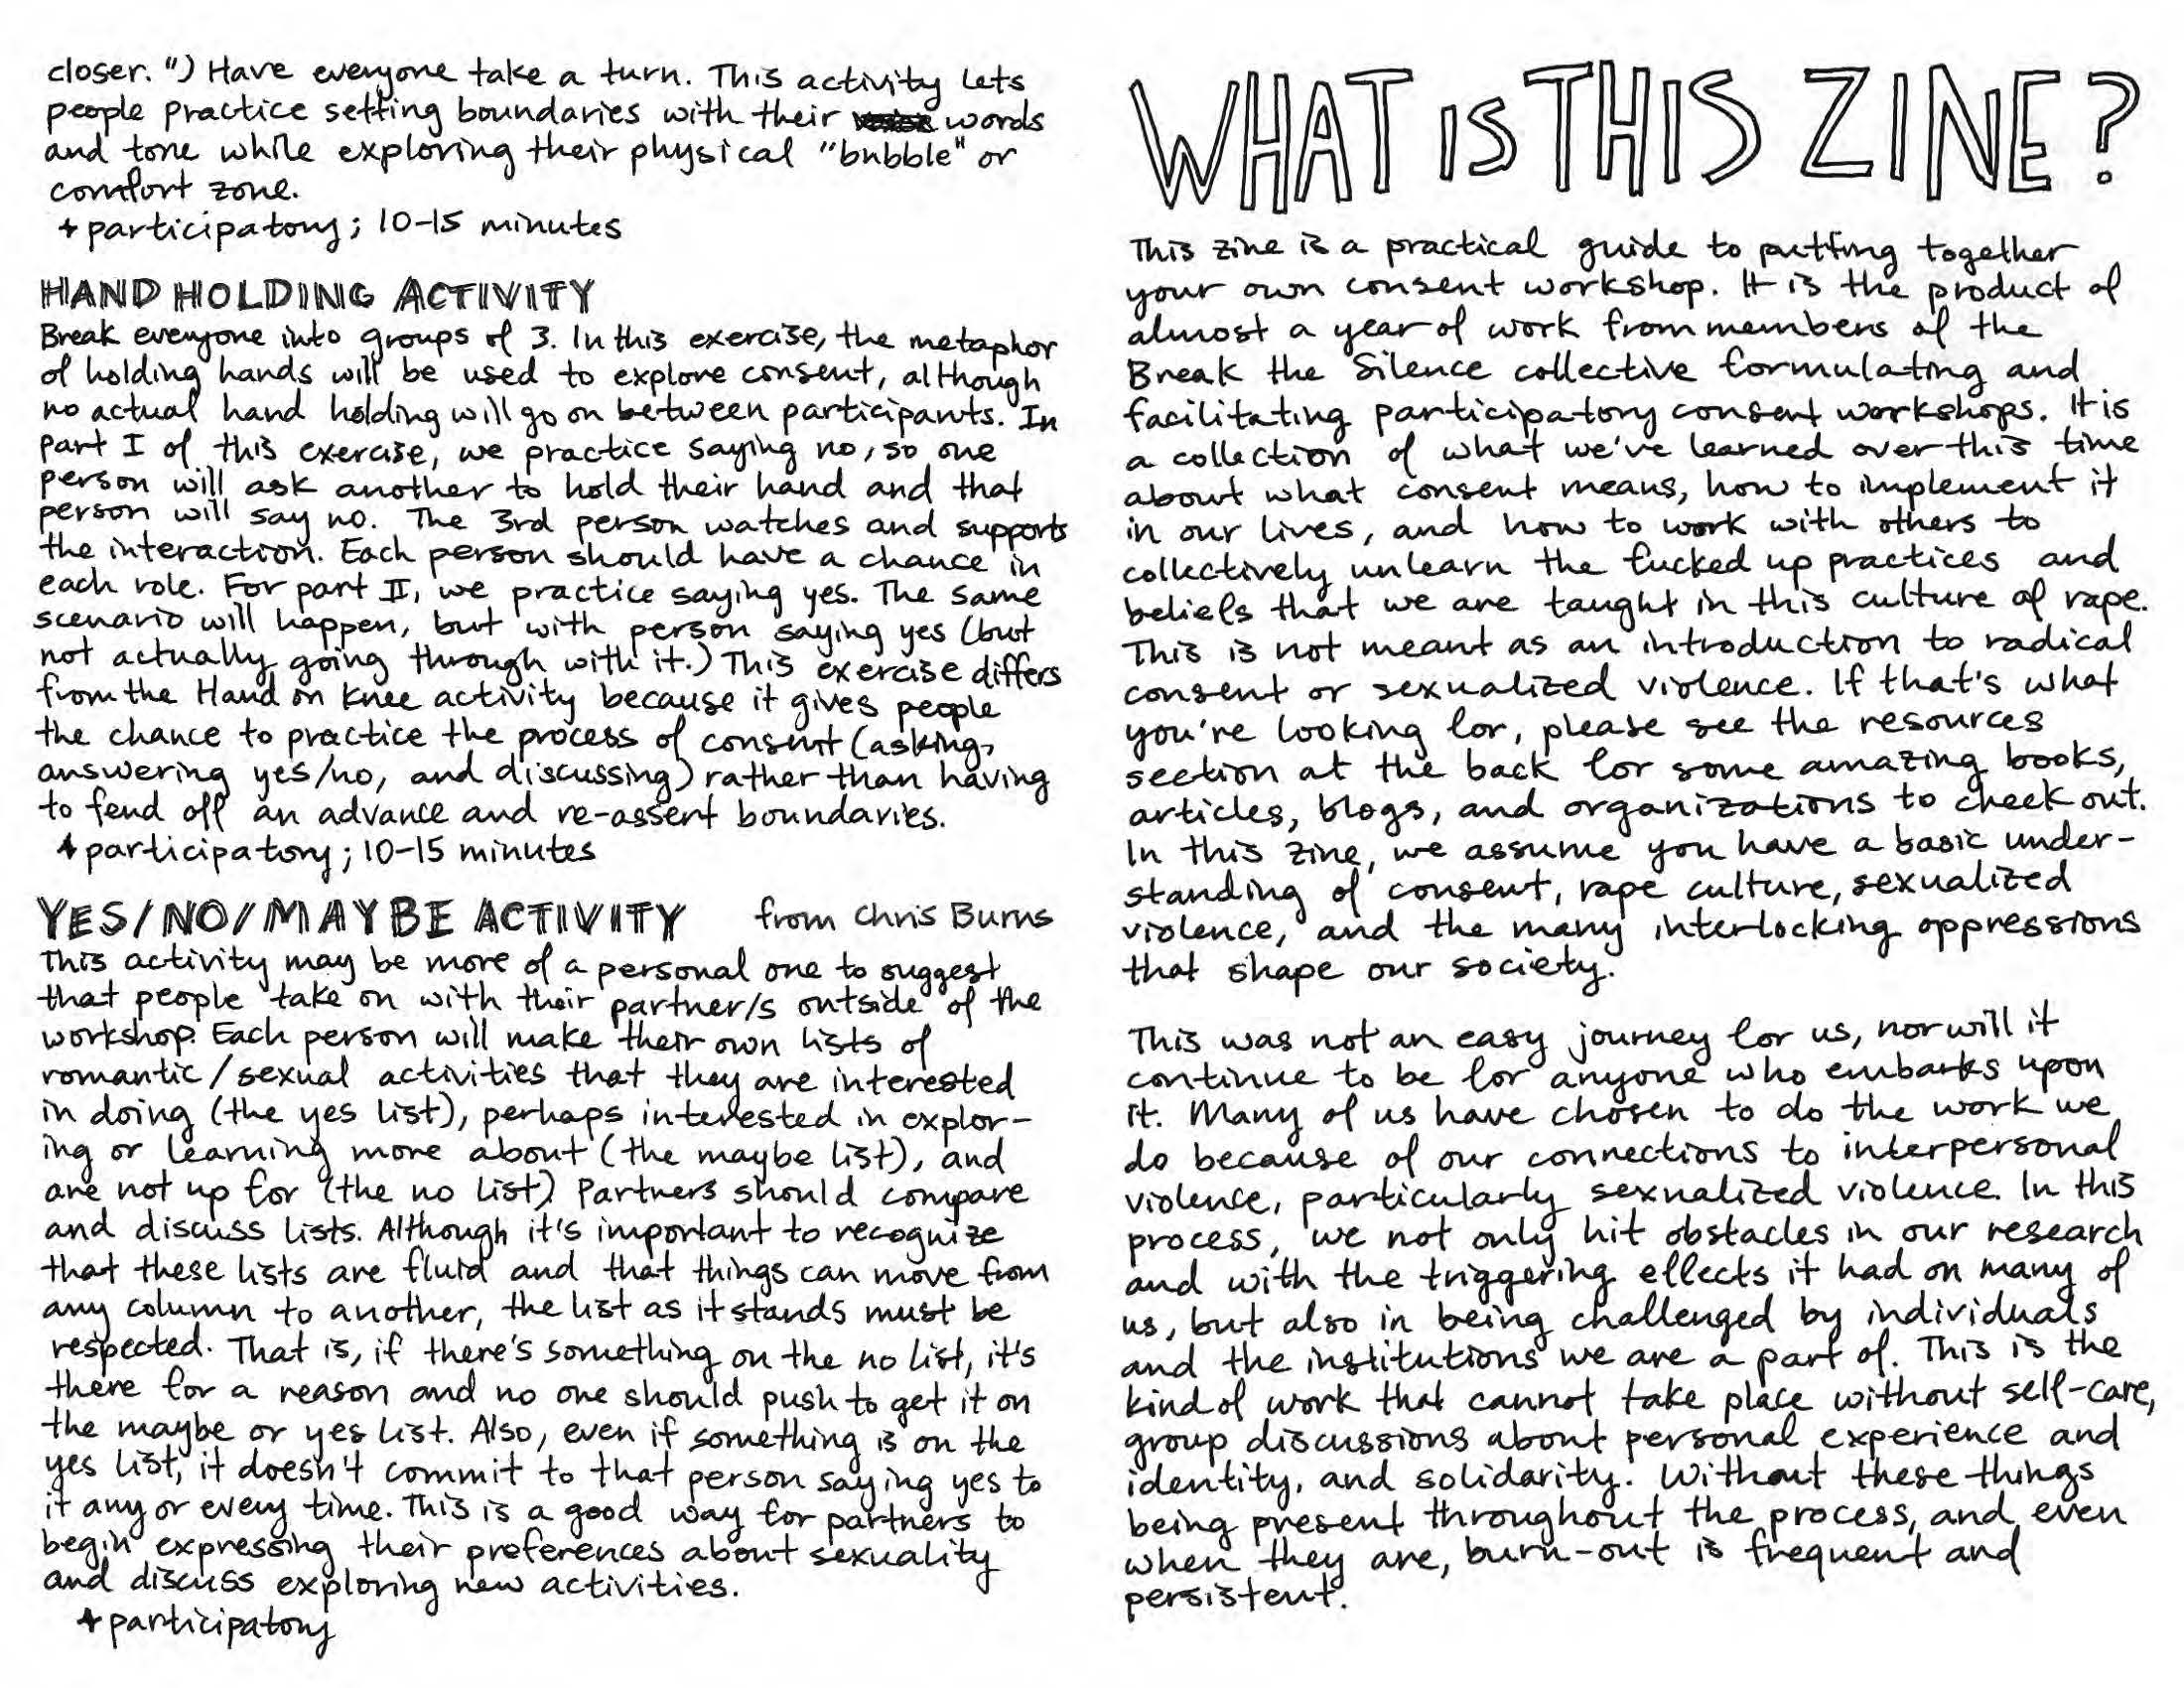 closer.") Have everyone take a turn. This activity lets
people practice setting boundaries with their words
and tone while exploring their physical "bubble" or
comfort zone.
+ participatory; 10-15 minutes
HAND HOLDING ACTIVITY
Break everyone into groups of 3. In this exercise, the metaphor
of holding hands will be used to explore consent, although
no actual hand holding will go on between participants. In
part I of this exercise, we practice saying no, so one
person will ask another to hold their hand and that
person will say no. The 3rd person watches and supports
the interaction. Each person should have a chance in
each role. For part II, we practice saying yes. The same
scenario will happen, but with person saying yes (but
not actually going through with it.) This exercise differs
from the Hand on Knee activity because it gives people
the chance to practice the process of consent (asking,
answering yes/no, and discussing) rather than having
to fend off an advance and re-assert boundaries.
+ participatory; 10-15 minutes
YES/NO/MAYBE ACTIVITY from Chris Burns
This activity may be more of a personal one to suggest
that people take on with their partner/s outside of the
workshop. Each person will make their own lists of
romantic/sexual activities that they are interested
in doing (the yes list), perhaps interested in explor-
ing or learning more about (the maybe list), and
are not up for (the no list). Partners should compare
and discuss lists. Although it's important to recognize
that these lists are fluid and that things can move from
any column to another, the list as it stands must be
respected. That is, if there's something on the no list, it's
there for a reason and no one should push to get it on
the maybe or yes list. Also, even if something is on the
yes list, it doesn't commit to that person saying yes to
it any or every time. This is a good way for partners to
begin expressing their preferences about sexuality
and discuss exploring new activities.
+ participatory
WHAT IS THIS ZINE?
This zine is a practical guide to putting together
your own consent workshop. It is the product of
almost a year of work from members of the
Break the Silence collective formulating and
facilitating participatory consent workshops. It is
a collection of what we've learned over this time
about what consent means, how to implement it
in our lives, and how to work with others to
collectively unlearn the fucked up practices and
beliefs that we are taught in this culture of rape.
This is not meant as an introduction to radical
consent or sexualized violence. If that's what
you're looking for, please see the resources
section at the back for some amazing books,
articles, blogs, and organizations to check out.
In this zine, we assume you have a basic under-
standing of consent, rape culture, sexualized
violence, and the many interlocking oppressions
that shape our society.
This was not an easy journey for us, nor will it
continue to be for anyone who embarks upon
it. Many of us have chosen to do the work we
do because of our connections to interpersonal
violence, particularly sexualized violence. In this
process, we not only hit obstacles in our research
and with the triggering effects it had on many of
us, but also in being challenged by individuals
and the institutions we are a part of. This is the
kind of work that cannot take place without self-care,
group discussions about personal experience and
identity, and solidarity. Without these things
being present throughout the process, and even
when they are, burn-out is frequent and
persistent.